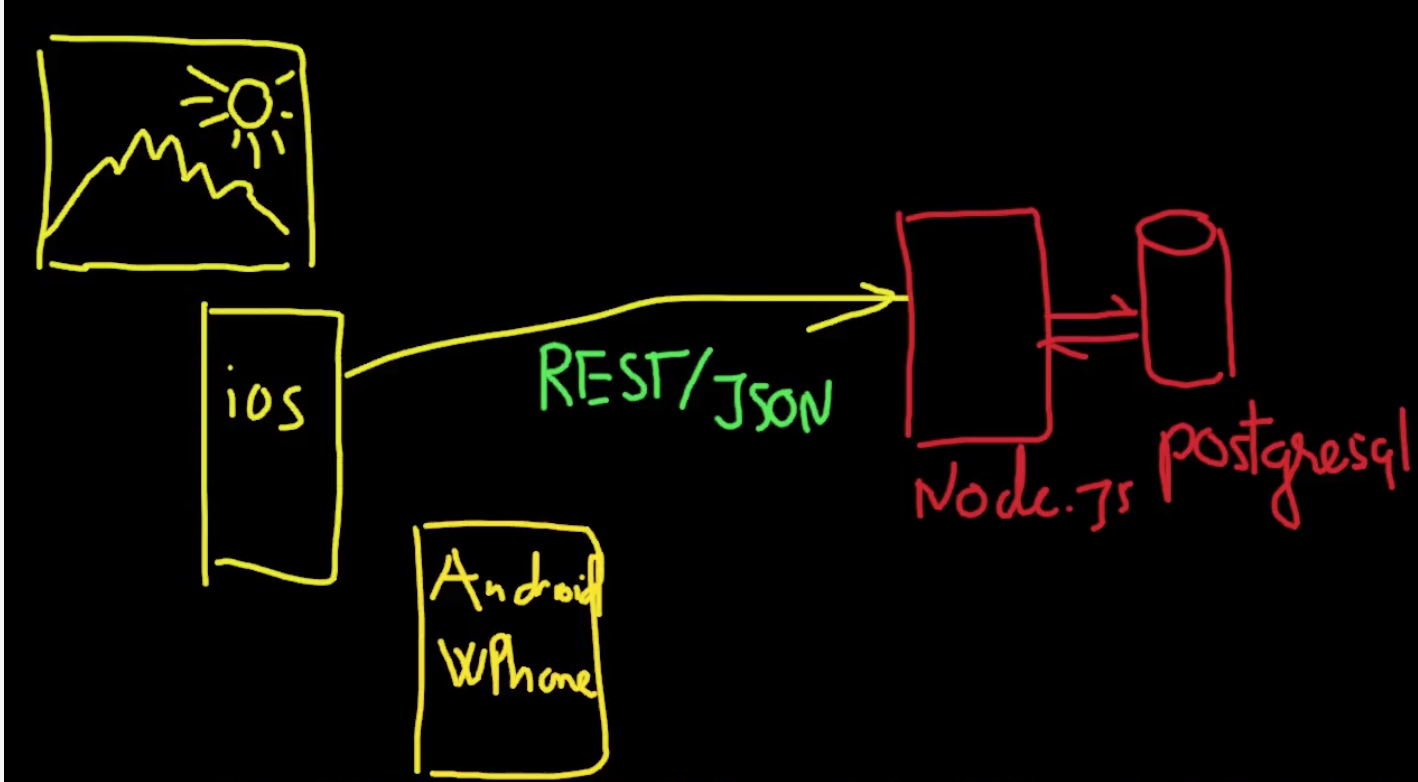 ios
REST/JSON
Node.JS
postgresql
Android
WPhone